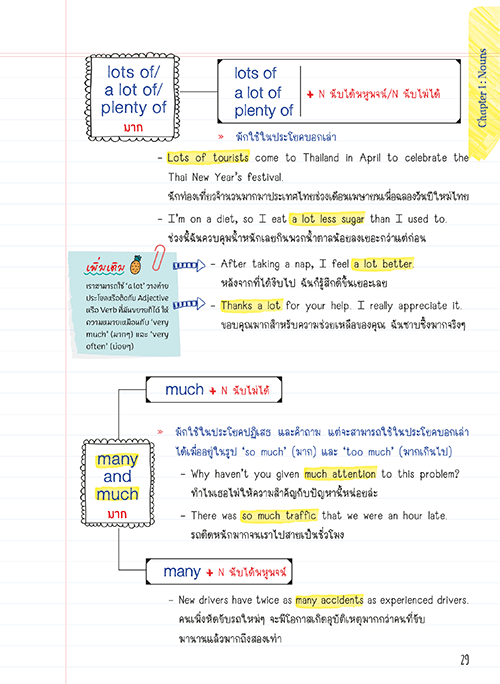 Chapter 1 : Nouns
lots of/
a lot of/
plenty of
มาก
lots of
a lot of
plenty of
+ N นับได้พหูพจน์/N นับไม่ได้
» มักใช้ในประโยคบอกเล่า
- Lots of tourists come to Thailand in April to celebrate the
Thai New Year's festival.
นักท่องเที่ยวจำนวนมากมาประเทศไทยช่วงเดือนเมษายนเพื่อฉลองวันปีใหม่ไทย
- I'm on a diet, so I eat a lot less sugar than I used to.
ช่วงนี้ฉันควบคุมน้ำหนักเลยกินพวกน้ำตาลน้อยลงเยอะกว่าแต่ก่อน
เพิ่มเติม
เราสามารถใช้ 'a lot' วางท้าย
ประโยคหรือติดกับ Adjective
หรือ Verb ที่มันขยายก็ได้ ให้
ความหมายเหมือนกับ 'very
much' (มากๆ) และ 'very
often' (บ่อยๆ)
- After taking a nap, I feel a lot better.
หลังจากที่ได้งีบไป ฉันก็รู้สึกดีขึ้นเยอะเลย
- Thanks a lot for your help. I really appreciate it.
ขอบคุณมากสำหรับความช่วยเหลือของคุณ ฉันซาบซึ้งมากจริงๆ
much + N นับไม่ได้
» มักใช้ในประโยคปฏิเสธ และคำถาม แต่จะสามารถใช้ในประโยคบอกเล่า
ได้เมื่ออยู่ในรูป 'so much' (มาก) และ 'too much' (มากเกินไป)
many
and
much
มาก
- Why haven't you given much attention to this problem?
ทำไมเธอไม่ให้ความสำคัญกับปัญหานี้หน่อยล่ะ
- There was so much traffic that we were an hour late.
รถติดหนักมากจนเราไปสายเป็นชั่วโมง
many + N นับได้พหูพจน์
- New drivers have twice as many accidents as experienced drivers.
คนเพิ่งหัดขับรถใหม่ๆ จะมีโอกาสเกิดอุบัติเหตุมากกว่าคนที่ขับ
มานานแล้วมากถึงสองเท่า
29